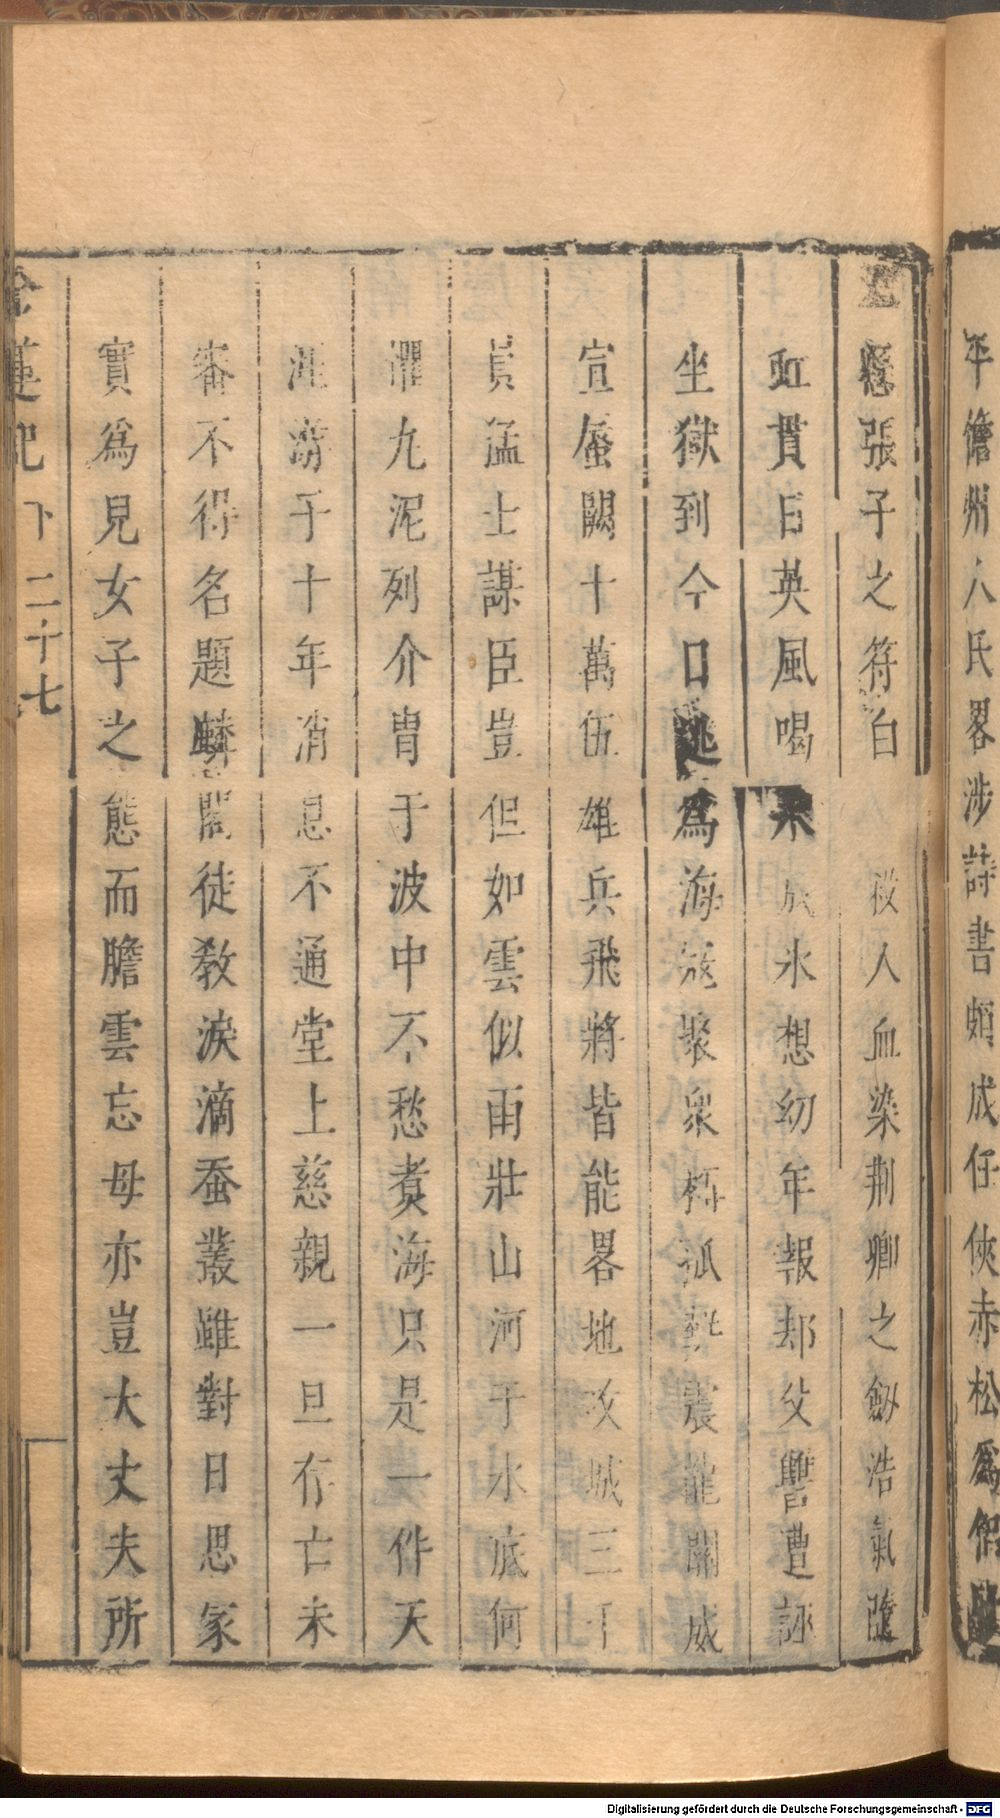 平儋州人氏畧涉詩書頗成任俠赤松爲侶
懸張子之符白 殺人血染荆卿之劍浩氣隨
虹貫日英風喝 成氷想幼年報却父讐遭誣
坐獄到今口逃爲海寇聚衆 孤 震龍關威
宣蜃闕十萬伍雄兵飛將皆能畧地攻城三千
員猛士謀臣豈但如雲似雨壯山河于水底何
懼九泥列介冑于波中不愁煮海只是一件天
涯 于十年消息不通堂上慈親一旦存亡未
審不得名題麟閣徒教淚滴蚕叢雖對日思家
實爲見女子之態而膽雲忘母亦豈大丈夫所
金蓮記 下 二十七
Digitalisierung gefördert durch die Deutsche Forschungsgemeinschaft - DFG